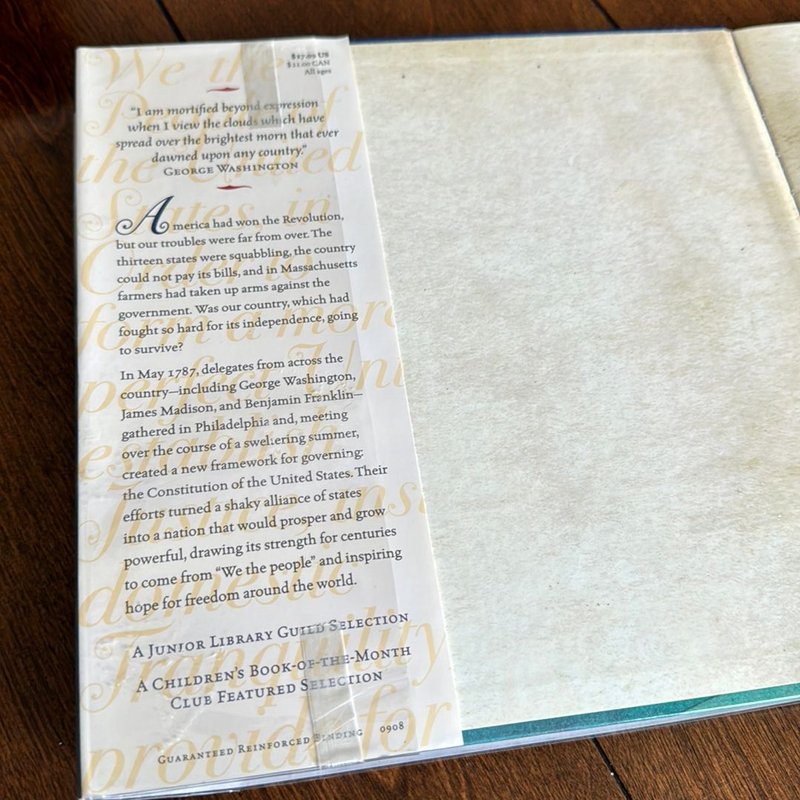 $17.99 US
$21.00 CAN
All ages
"I am mortified beyond expression
when I view the clouds which have
spread over the brightest morn that ever
dawned upon any country."
GEORGE WASHINGTON
America had won the Revolution,
but our troubles were far from over. The
thirteen states were squabbling, the country
could not pay its bills, and in Massachusetts
farmers had taken up arms against the
government. Was our country, which had
fought so hard for its independence, going
to survive?
In May 1787, delegates from across the
country—including George Washington,
James Madison, and Benjamin Franklin—
gathered in Philadelphia and, meeting
over the course of a sweltering summer,
created a new framework for governing:
the Constitution of the United States. Their
efforts turned a shaky alliance of states
into a nation that would prosper and grow
powerful, drawing its strength for centuries
to come from "We the people" and inspiring
hope for freedom around the world.
A JUNIOR LIBRARY GUILD SELECTION
A CHILDREN'S BOOK-OF-THE-MONTH
CLUB FEATURED SELECTION
GUARANTEED REINFORCED BINDING 0908
We the
People of
the United
States, in
Order to
form a more
perfect Uni
establish
Justice, ins
domestic
Tranquility
provide for